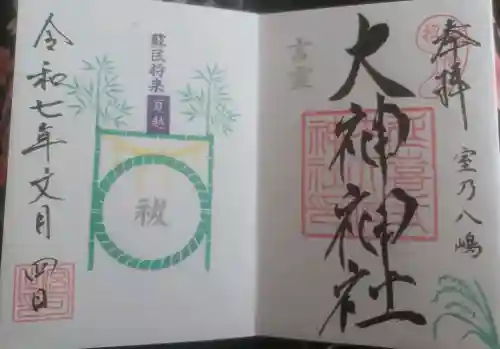 奉拝
室乃八嶋
大神神社
言霊
蘇民将来
夏越
祓
令和七年文月四日